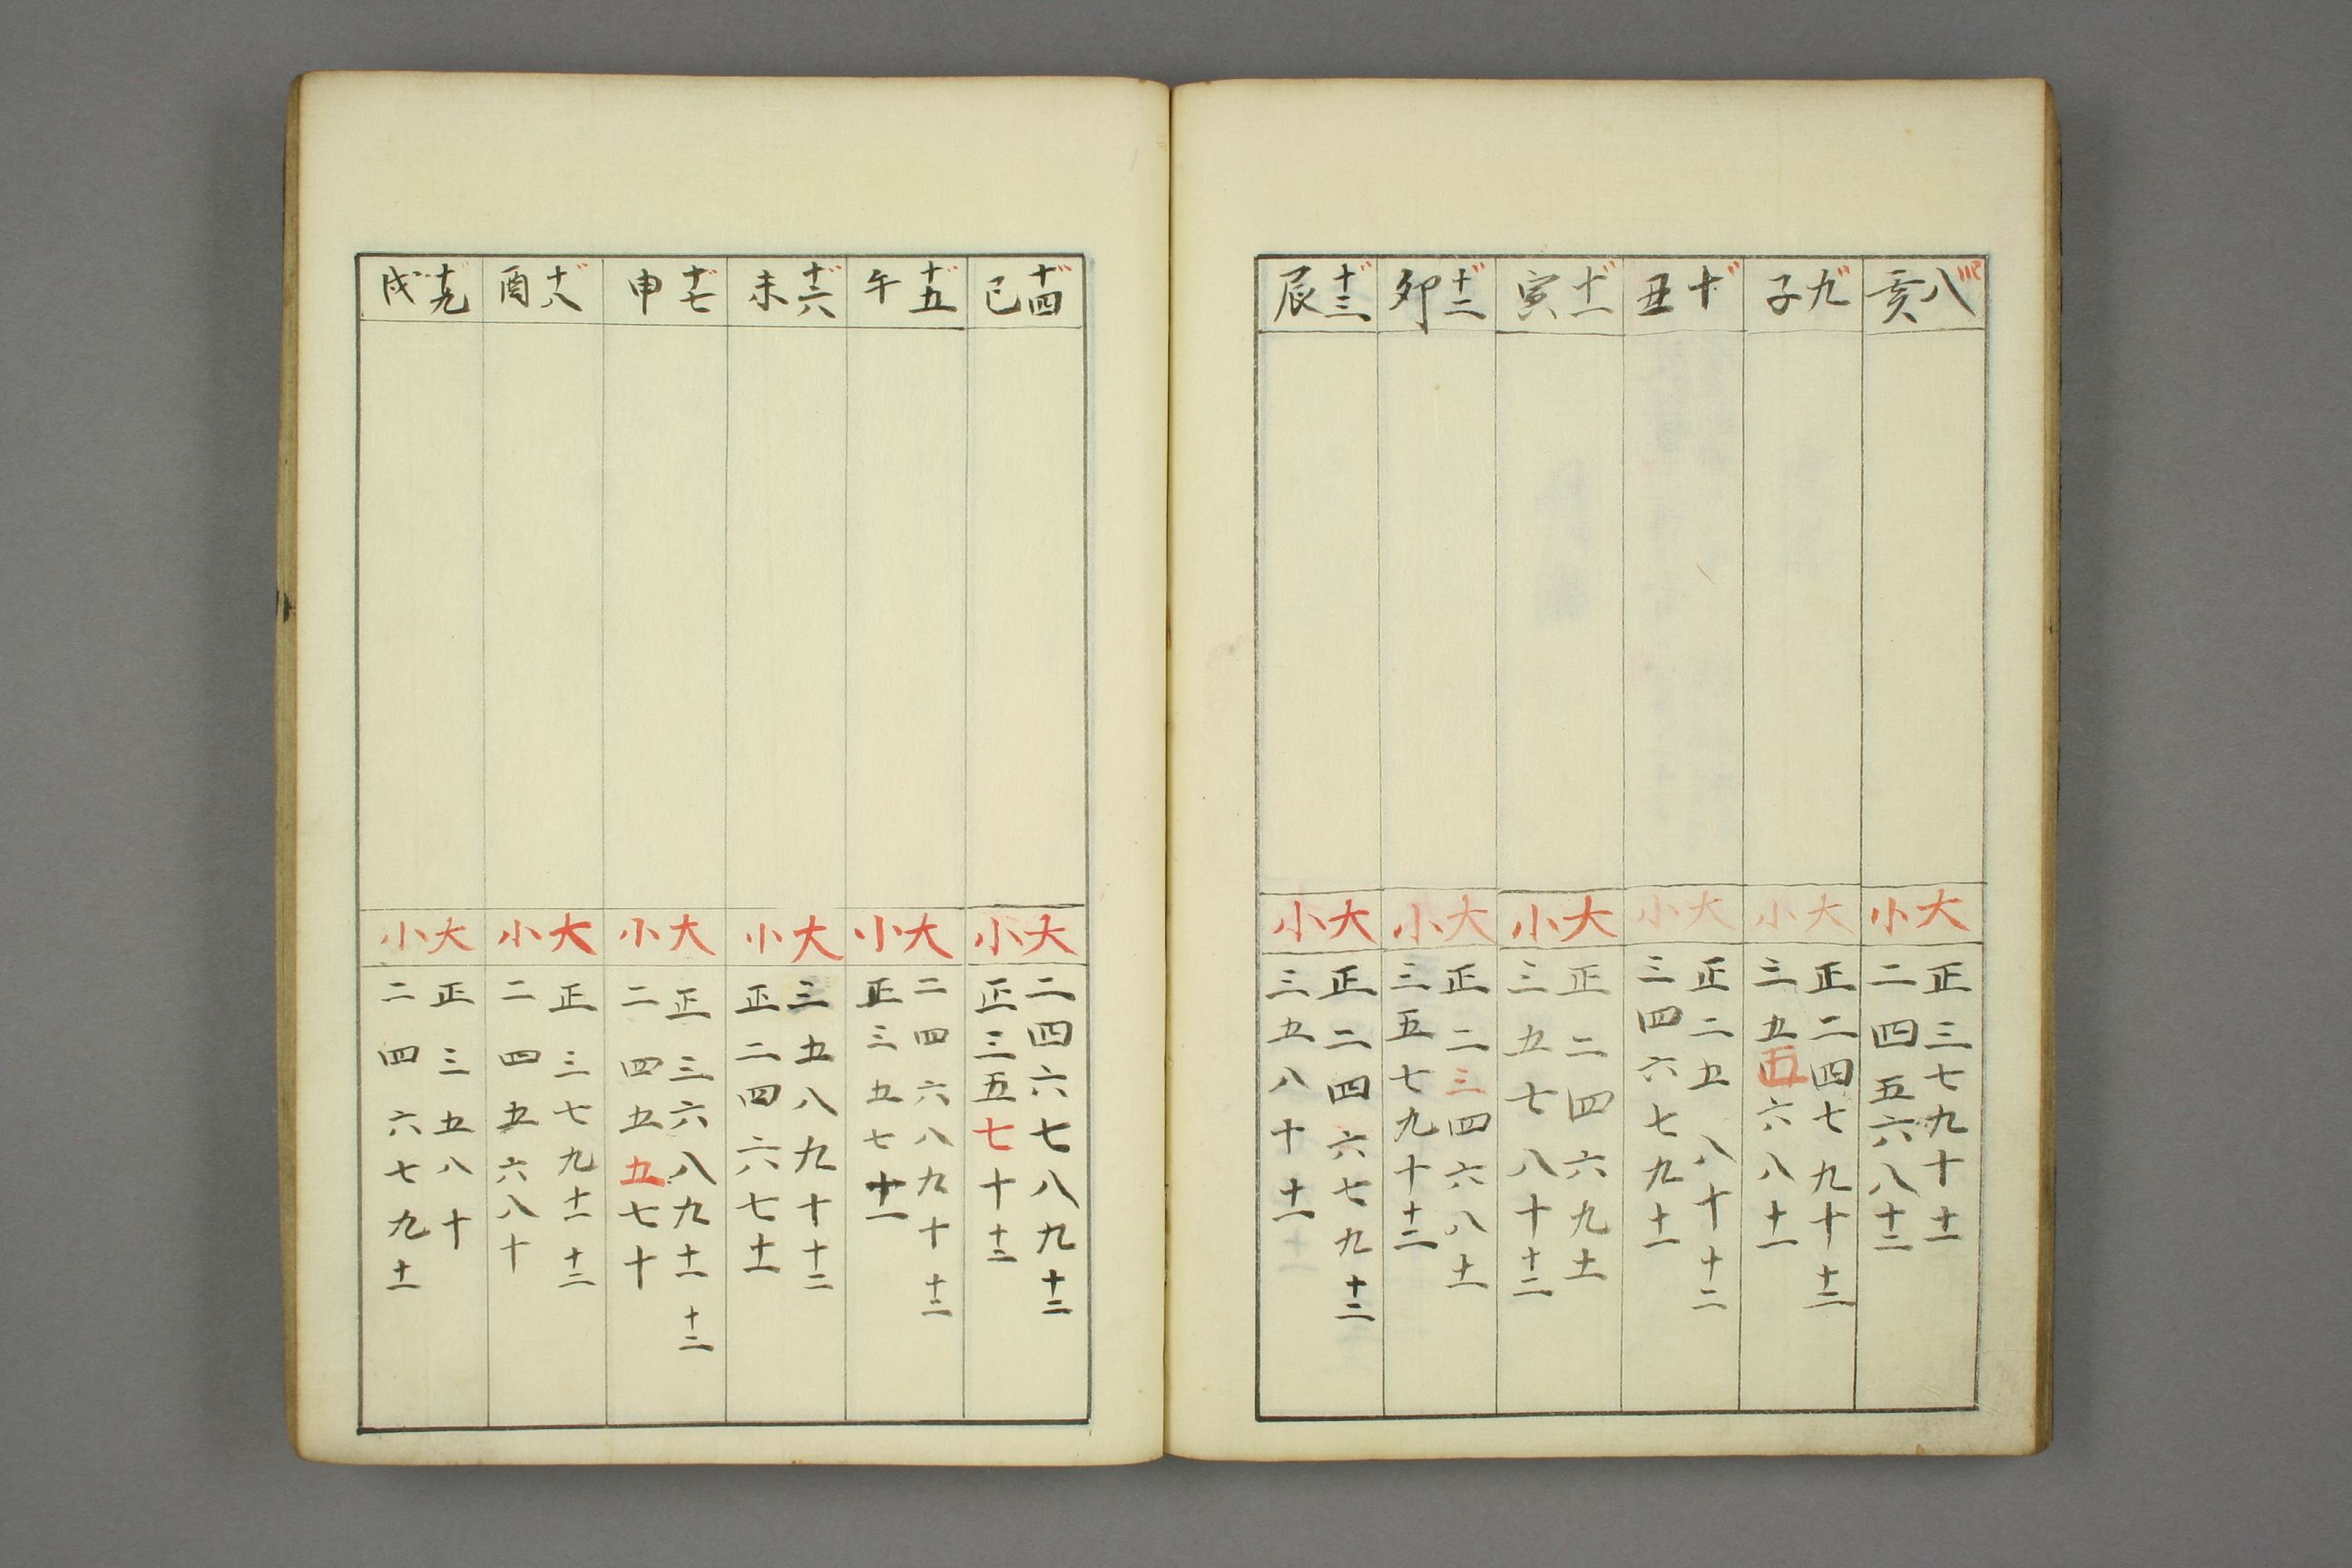 八 亥
大 小
正三七九十十一
二四五六八十二
九 子
大 小
正二四七九十十二
三五五六八十一
十 丑
大 小
正二五八十十二
三四六七九十一
十一 寅
大 小
正二四六九十一
三五七八十十二
十二 卯
大 小
正二三四六八十一
三五七九十十二
十三 辰
大 小
正二四六七九十二
三五八十十一
十四 巳
大 小
二四六七八九十二
正三五七十十一
十五 午
大 小
二四六八九十十二
正三五七十一
十六 未
大 小
三五八九十十二
正二四六七十一
十七 申
大 小
正三六八九十一十二
二四五五七十
十八 酉
大 小
正三七九十一十二
二四五六八十
十九 戌
大 小
正三五八十
二四六七九十一